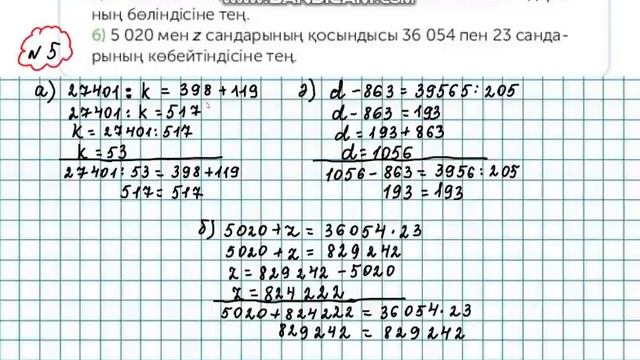 ның бөліндісіне тең.
б) 5 020 мен z сандарының қосындысы 36 054 пен 23 санда-
рының көбейтіндісіне тең.
№ 5
а) 27401 : k = 398 + 119
27401 : k = 517
k = 27401 : 517
k = 53
27401 : 53 = 398 + 119
517 = 517
ә) d - 863 = 39565 : 205
d - 863 = 193
d = 193 + 863
d = 1056
1056 - 863 = 3956 : 205
193 = 193
б) 5020 + z = 36054 · 23
5020 + z = 829 242
z = 829 242 - 5020
z = 824 222
5020 + 824 222 = 36054 · 23
829 242 = 829 242